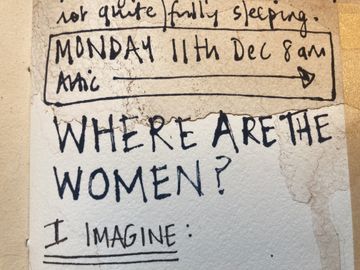 not quite) fully sleeping.
MONDAY 11th Dec 8am
Attic
WHERE ARE THE
WOMEN?
I IMAGINE: